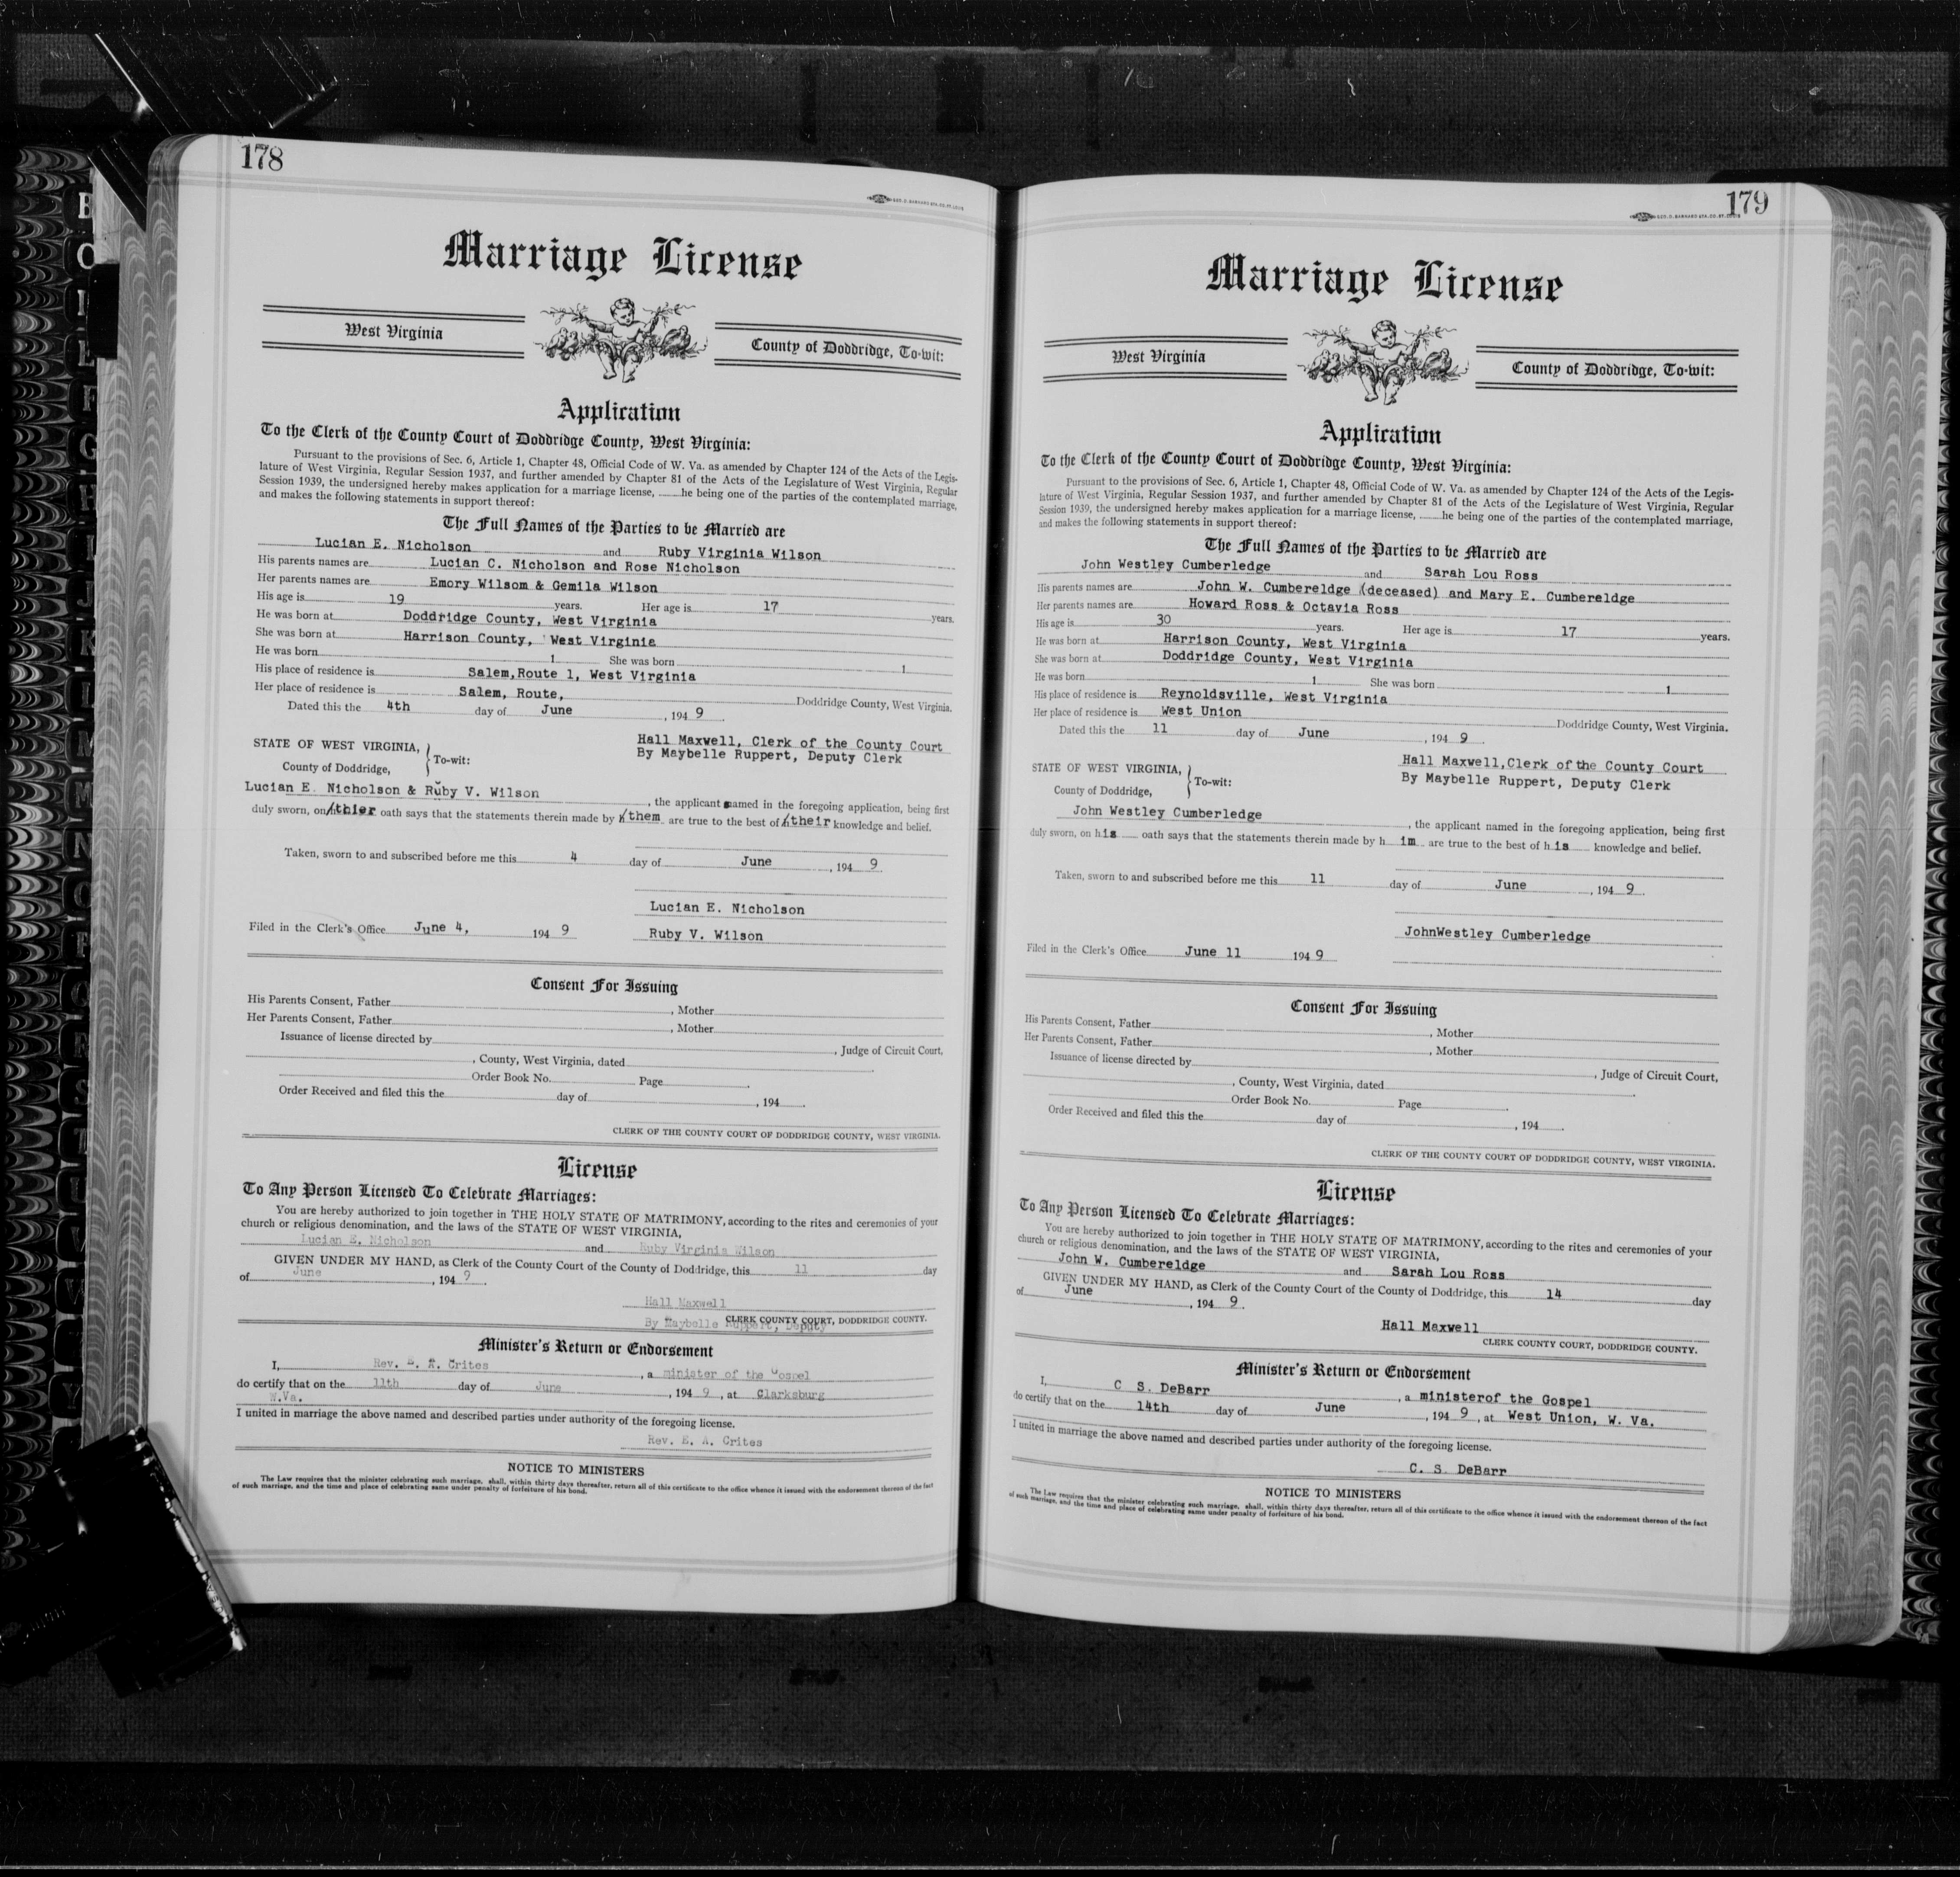 178
GEO. D. BARNARD STA. CO. ST. LOUIS
Marriage License
West Virginia
County of Doddridge, To-wit:
Application
To the Clerk of the County Court of Doddridge County, West Virginia:
Pursuant to the provisions of Sec. 6, Article 1, Chapter 48, Official Code of W. Va. as amended by Chapter 124 of the Acts of the Legis-
lature of West Virginia, Regular Session 1937, and further amended by Chapter 81 of the Acts of the Legislature of West Virginia, Regular
Session 1939, the undersigned hereby makes application for a marriage license, he being one of the parties of the contemplated marriage,
and makes the following statements in support thereof:
The Full Names of the Parties to be Married are
Lucian E. Nicholson and Ruby Virginia Wilson
His parents names are Lucian C. Nicholson and Rose Nicholson
Her parents names are Emory Wilsom & Gemila Wilson
His age is 19 years. Her age is 17 years.
He was born at Doddridge County, West Virginia
She was born at Harrison County, West Virginia
He was born 1 She was born 1
His place of residence is Salem,Route 1, West Virginia
Her place of residence is Salem, Route, Doddridge County, West Virginia.
Dated this the 4th day of June, 194 9
Hall Maxwell, Clerk of the County Court
By Maybelle Ruppert, Deputy Clerk
STATE OF WEST VIRGINIA,
County of Doddridge, To-wit:
Lucian E. Nicholson & Ruby V. Wilson, the applicant named in the foregoing application, being first
duly sworn, on thier oath says that the statements therein made by h/them are true to the best of h/their knowledge and belief.
Taken, sworn to and subscribed before me this 4 day of June, 194 9
Lucian E. Nicholson
Filed in the Clerk's Office June 4, 194 9 Ruby V. Wilson
Consent For Issuing
His Parents Consent, Father, Mother
Her Parents Consent, Father, Mother
Issuance of license directed by, Judge of Circuit Court,
, County, West Virginia, dated.
Order Book No. Page.
Order Received and filed this the day of, 194.
CLERK OF THE COUNTY COURT OF DODDRIDGE COUNTY, WEST VIRGINIA.
License
To Any Person Licensed To Celebrate Marriages:
You are hereby authorized to join together in THE HOLY STATE OF MATRIMONY, according to the rites and ceremonies of your
church or religious denomination, and the laws of the STATE OF WEST VIRGINIA,
Lucian E. Nicholson and Ruby Virginia Wilson
GIVEN UNDER MY HAND, as Clerk of the County Court of the County of Doddridge, this 11 day
of June, 194 9.
Hall Maxwell
CLERK COUNTY COURT, DODDRIDGE COUNTY.
By Maybelle Ruppert, Deputy
Minister's Return or Endorsement
I, Rev. E. A. Crites, a minister of the Gospel
do certify that on the 11th day of June, 194 9, at Clarksburg
W.Va.
I united in marriage the above named and described parties under authority of the foregoing license.
Rev. E. A. Crites
NOTICE TO MINISTERS
The Law requires that the minister celebrating such marriage, shall, within thirty days thereafter, return all of this certificate to the office whence it issued with the endorsement thereon of the fact
of such marriage, and the time and place of celebrating same under penalty of forfeiture of his bond.
179
GEO. D. BARNARD STA. CO. ST. LOUIS
Marriage License
West Virginia
County of Doddridge, To-wit:
Application
To the Clerk of the County Court of Doddridge County, West Virginia:
Pursuant to the provisions of Sec. 6, Article 1, Chapter 48, Official Code of W. Va. as amended by Chapter 124 of the Acts of the Legis-
lature of West Virginia, Regular Session 1937, and further amended by Chapter 81 of the Acts of the Legislature of West Virginia, Regular
Session 1939, the undersigned hereby makes application for a marriage license, he being one of the parties of the contemplated marriage,
and makes the following statements in support thereof:
The Full Names of the Parties to be Married are
John Westley Cumberledge and Sarah Lou Ross
His parents names are John W. Cumbereldge (deceased) and Mary E. Cumbereldge
Her parents names are Howard Ross & Octavia Ross
His age is 30 years. Her age is 17 years.
He was born at Harrison County, West Virginia
She was born at Doddridge County, West Virginia
He was born 1 She was born 1
His place of residence is Reynoldsville, West Virginia
Her place of residence is West Union Doddridge County, West Virginia.
Dated this the 11 day of June, 194 9.
Hall Maxwell,Clerk of the County Court
By Maybelle Ruppert, Deputy Clerk
STATE OF WEST VIRGINIA,
County of Doddridge, To-wit:
John Westley Cumberledge, the applicant named in the foregoing application, being first
duly sworn, on his oath says that the statements therein made by h im are true to the best of his knowledge and belief.
Taken, sworn to and subscribed before me this 11 day of June, 194 9.
JohnWestley Cumberledge
Filed in the Clerk's Office June 11 194 9
Consent For Issuing
His Parents Consent, Father, Mother
Her Parents Consent, Father, Mother
Issuance of license directed by, Judge of Circuit Court,
, County, West Virginia, dated.
Order Book No. Page.
Order Received and filed this the day of, 194.
CLERK OF THE COUNTY COURT OF DODDRIDGE COUNTY, WEST VIRGINIA.
License
To Any Person Licensed To Celebrate Marriages:
You are hereby authorized to join together in THE HOLY STATE OF MATRIMONY, according to the rites and ceremonies of your
church or religious denomination, and the laws of the STATE OF WEST VIRGINIA,
John W. Cumbereldge and Sarah Lou Ross
GIVEN UNDER MY HAND, as Clerk of the County Court of the County of Doddridge, this 14 day
of June, 194 9.
Hall Maxwell
CLERK COUNTY COURT, DODDRIDGE COUNTY.
Minister's Return or Endorsement
I, C S. DeBarr, a ministerof the Gospel
do certify that on the 14th day of June, 194 9, at West Union, W. Va.
I united in marriage the above named and described parties under authority of the foregoing license.
C. S. DeBarr
NOTICE TO MINISTERS
The Law requires that the minister celebrating such marriage, shall, within thirty days thereafter, return all of this certificate to the office whence it issued with the endorsement thereon of the fact
of such marriage, and the time and place of celebrating same under penalty of forfeiture of his bond.